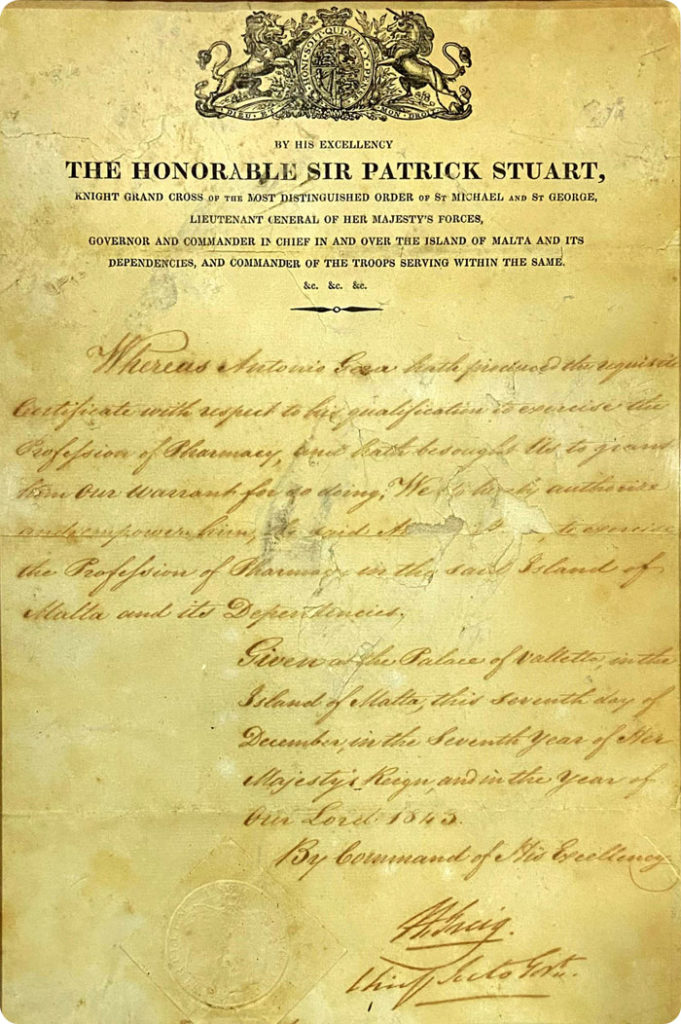 HONI SOIT QUI MAL Y PENSE
DIEU ET MON DROIT
BY HIS EXCELLENCY
THE HONORABLE SIR PATRICK STUART,
KNIGHT GRAND CROSS OF THE MOST DISTINGUISHED ORDER OF ST MICHAEL AND ST GEORGE,
LIEUTENANT GENERAL OF HER MAJESTY'S FORCES,
GOVERNOR AND COMMANDER IN CHIEF IN AND OVER THE ISLAND OF MALTA AND ITS
DEPENDENCIES, AND COMMANDER OF THE TROOPS SERVING WITHIN THE SAME.
&c. &c. &c.
Whereas Antonio hath produced the requisite
Certificate with respect to his qualification to exercise the
Profession of Pharmacy, and hath besought Us to grant
him Our Warrant for so doing; We do hereby authorize
and empower him, the said to exercise
the Profession of Pharmacy in the said Island of
Malta and its Dependencies.
Given at the Palace of Valletta, in the
Island of Malta, this Seventh day of
December, in the Seventh Year of Her
Majesty's Reign, and in the Year of
Our Lord 1843.
By Command of His Excellency
Chief Sec to Govt.